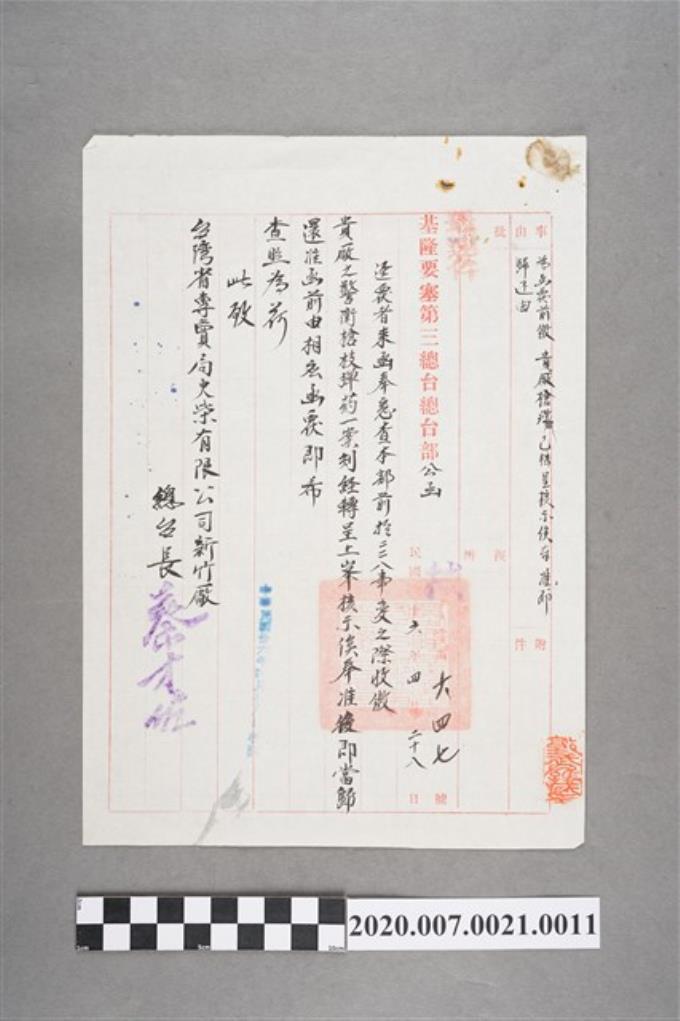 事由
為函覆前繳貴廠槍彈已轉呈核示俟奉准即
歸還由
附件
批
擬辦
基隆要塞第三總台總台部公函
民國三十六年四月二十八日
號
逕覆者来函奉悉查本部前於二二八事变之際收繳
貴廠之警衛槍枝弹药一案刻经轉呈上峯核示俟奉准後即當歸
還准函前由相应函覆即希
查照為荷
此致
台湾省專賣局火柴有限公司新竹廠
總台長
2020.007.0021.0011